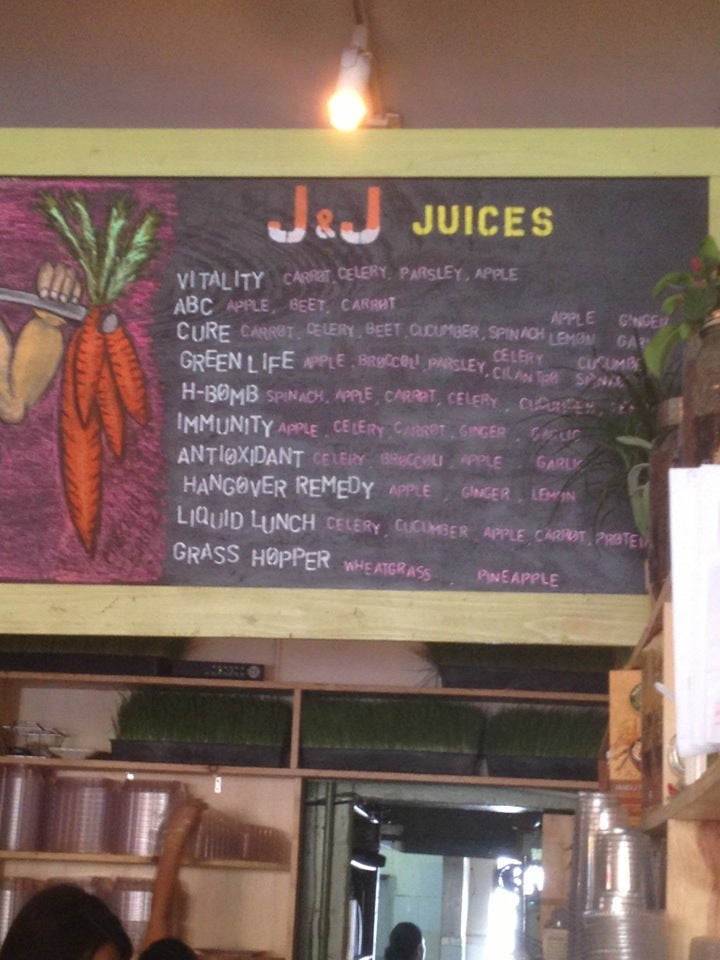 J&J JUICES
VITALITY CARROT, CELERY, PARSLEY, APPLE
ABC APPLE, BEET, CARROT
CURE CARROT, CELERY, BEET, CUCUMBER, SPINACH APPLE GINGER LEMON
GREEN LIFE APPLE, BROCCOLI, PARSLEY, CELERY CILANTRO
H-BOMB SPINACH, APPLE, CARROT, CELERY, CUCUMBER,
IMMUNITY APPLE, CELERY, CARROT, GINGER, GARLIC
ANTIOXIDANT CELERY, BROCCOLI, APPLE GARLIC
HANGOVER REMEDY APPLE, GINGER, LEMON
LIQUID LUNCH CELERY, CUCUMBER, APPLE, CARROT, PROTEIN
GRASS HOPPER WHEATGRASS, PINEAPPLE